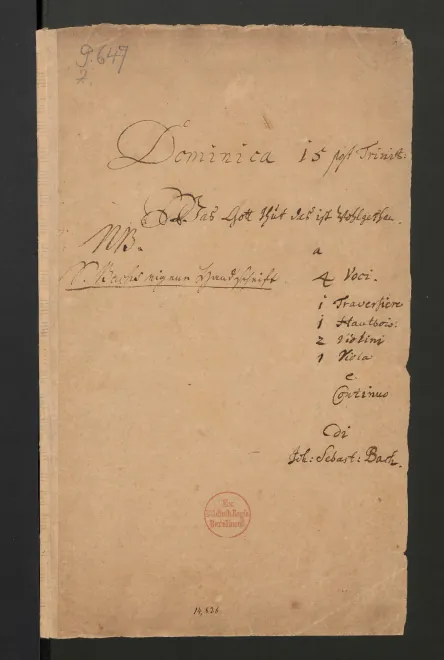 9.647
2
Dominica 15 post Trinit:
Was Gott thut das ist Wohlgethan.
NB.
S. Bachs eigene Handschrift.
a
4 Voci.
1 Traversiere
1 Hautbois.
2 Violini
1 Viola
e
Continuo
di
Joh: Sebast: Bach.
Ex
Biblioth. Regia
Berolinensi.
14,826